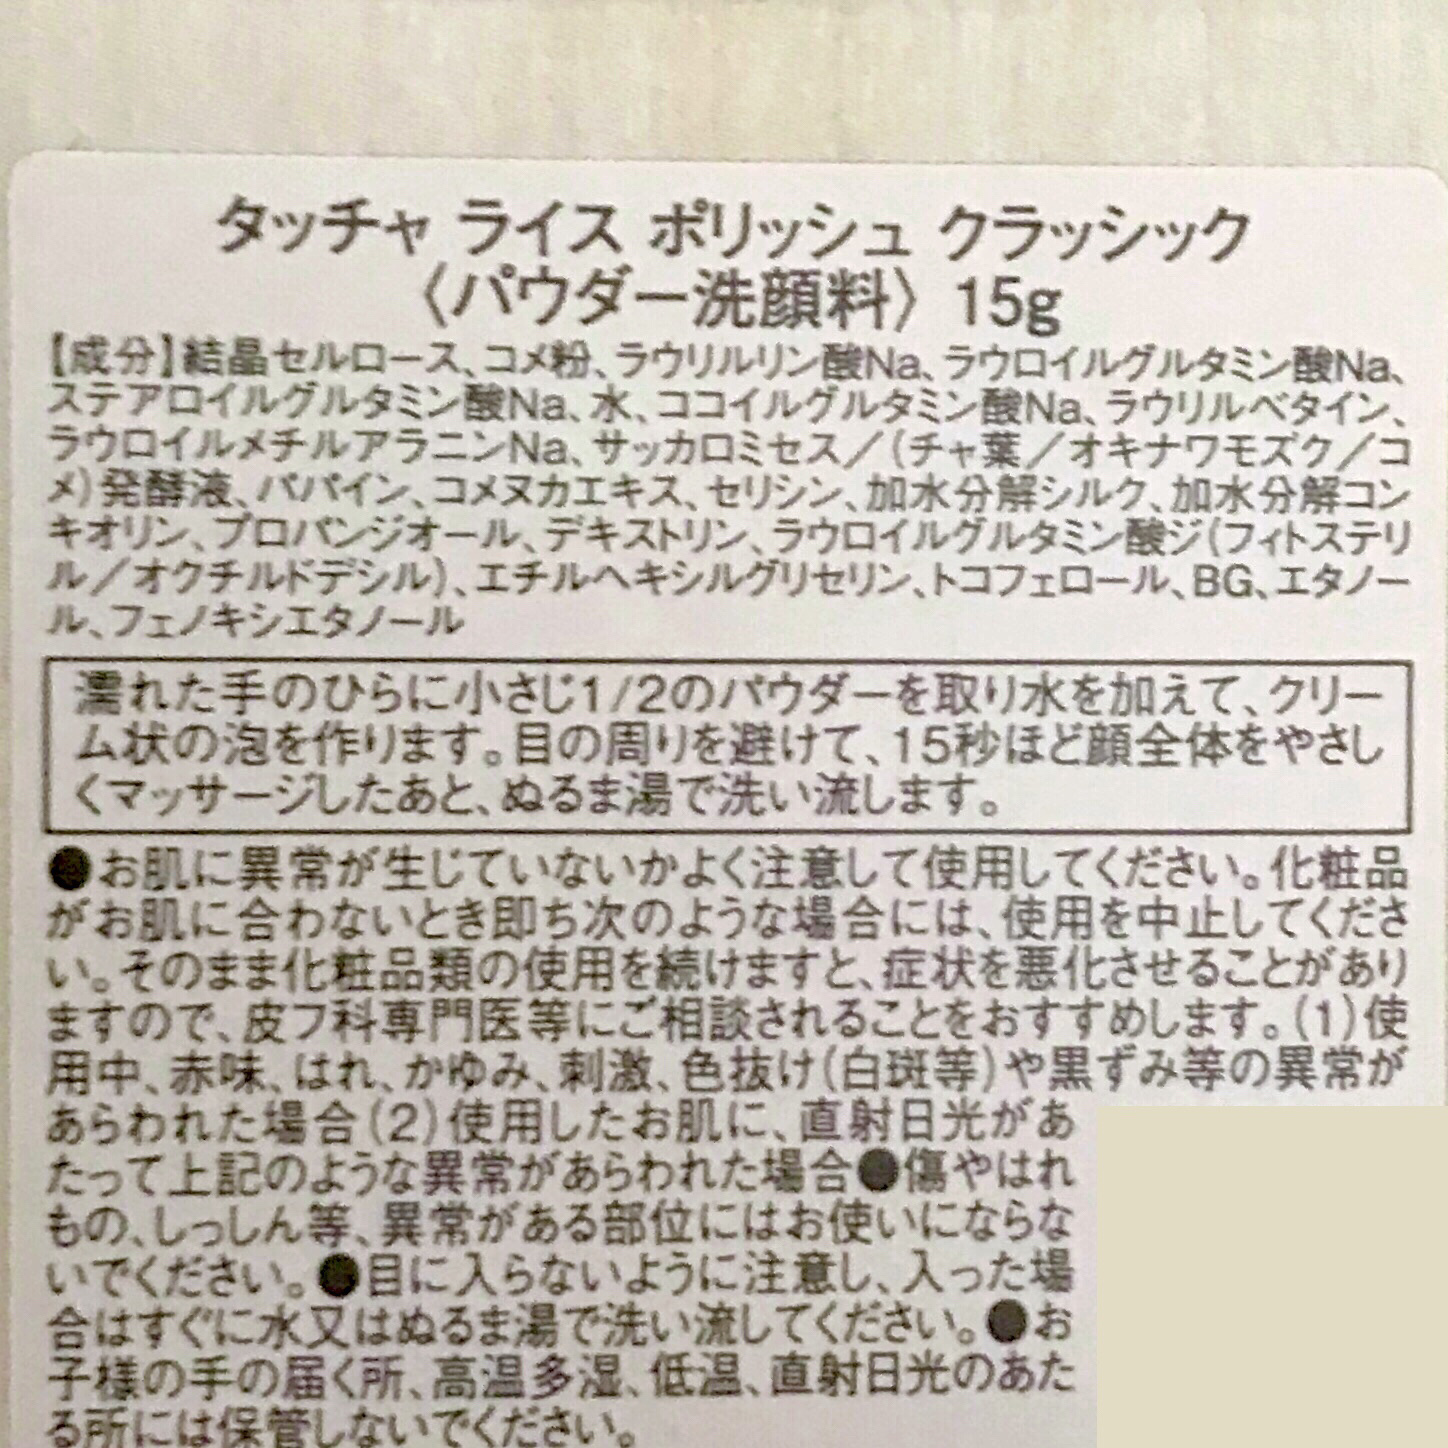 タッチャ ライス ポリッシュ クラッシック
〈パウダー洗顔料〉 15g
【成分】結晶セルロース、コメ粉、ラウリルリン酸Na、ラウロイルグルタミン酸Na、
ステアロイルグルタミン酸Na、水、ココイルグルタミン酸Na、ラウリルベタイン、
ラウロイルメチルアラニンNa、サッカロミセス／(チャ葉／オキナワモズク／コ
メ)発酵液、パパイン、コメヌカエキス、セリシン、加水分解シルク、加水分解コン
キオリン、プロパンジオール、デキストリン、ラウロイルグルタミン酸ジ(フィトステリ
ル／オクチルドデシル)、エチルヘキシルグリセリン、トコフェロール、BG、エタノー
ル、フェノキシエタノール
濡れた手のひらに小さじ1/2のパウダーを取り水を加えて、クリー
ム状の泡を作ります。目の周りを避けて、15秒ほど顔全体をやさし
くマッサージしたあと、ぬるま湯で洗い流します。
●お肌に異常が生じていないかよく注意して使用してください。化粧品
がお肌に合わないとき即ち次のような場合には、使用を中止してくださ
い。そのまま化粧品類の使用を続けますと、症状を悪化させることがあり
ますので、皮フ科専門医等にご相談されることをおすすめします。(1)使
用中、赤味、はれ、かゆみ、刺激、色抜け(白斑等)や黒ずみ等の異常が
あらわれた場合(2)使用したお肌に、直射日光があ
たって上記のような異常があらわれた場合●傷やはれ
もの、しっしん等、異常がある部位にはお使いにならな
いでください。●目に入らないように注意し、入った場
合はすぐに水又はぬるま湯で洗い流してください。●お
子様の手の届く所、高温多湿、低温、直射日光のあた
る所には保管しないでください。